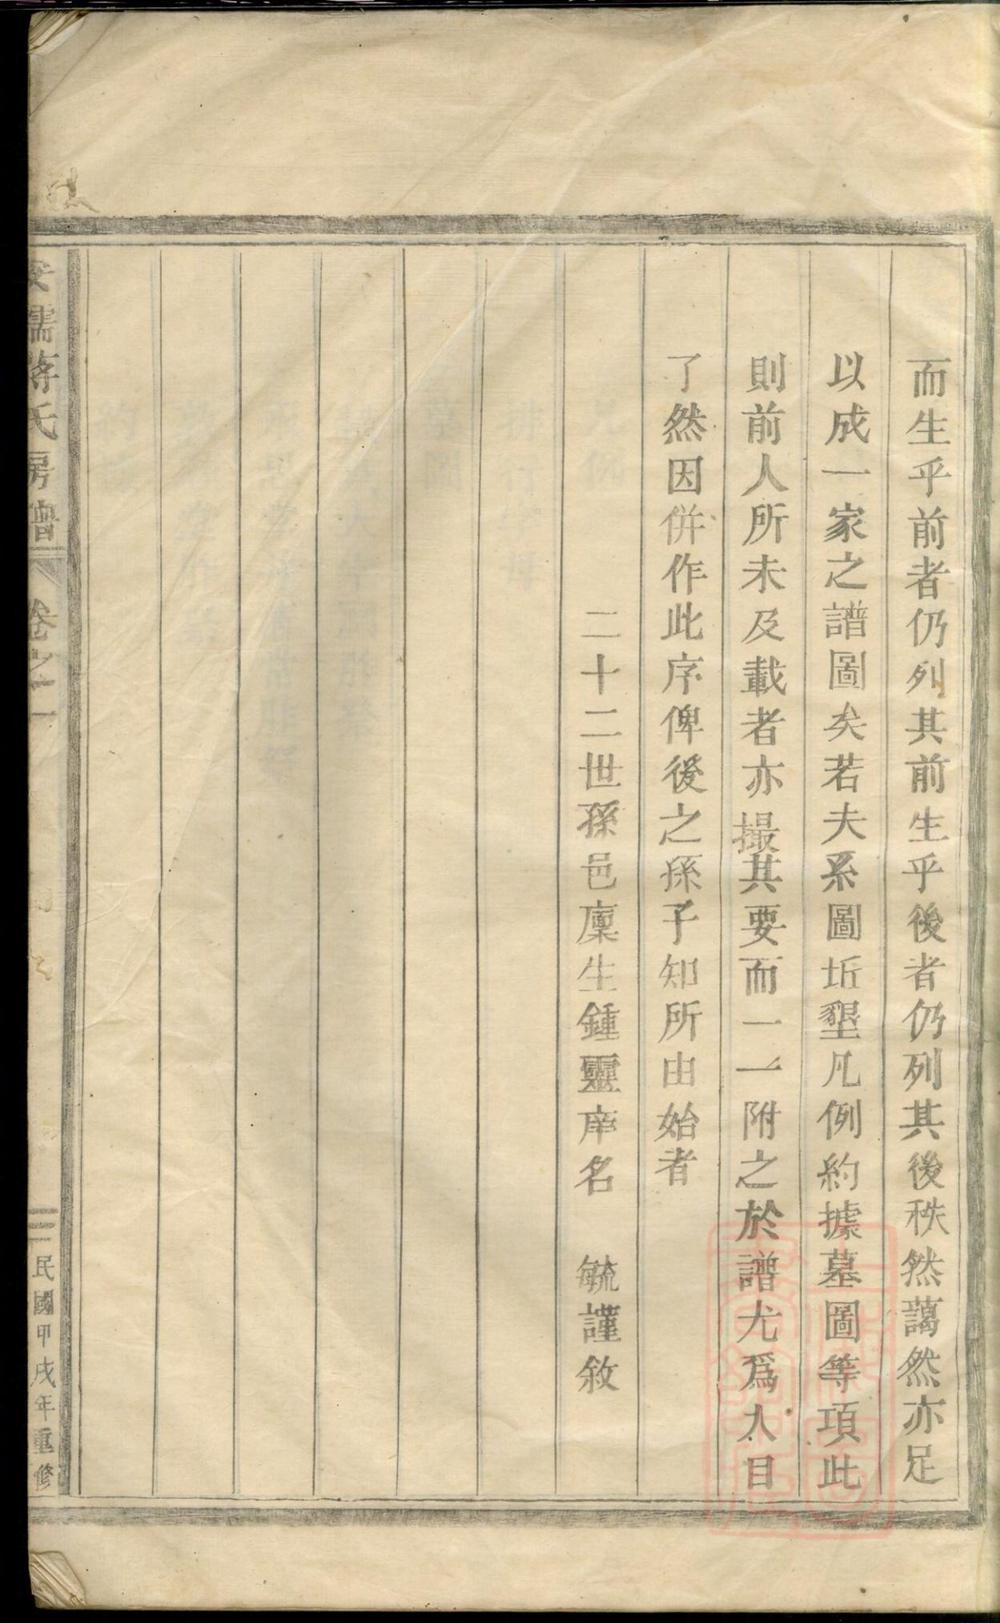 而生乎前者仍列其前生乎後者仍列其後秩然藹然亦足
以成一家之譜圖矣若夫系圖坵墾凡例約據墓圖等項此
則前人所未及載者亦撮其要而一一附之於譜尤爲人目
了然因併作此序俾後之孫子知所由始者
二十二世孫邑廩生鍾靈庠名　毓謹敘
安儒蔣氏房譜　卷之一
民國甲戌年重修